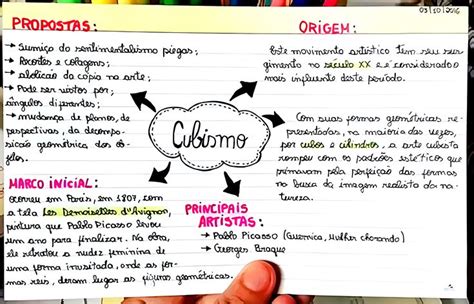 03/10/2016
PROPOSTAS:
→ Sumiço do sentimentalismo piegas;
→ Recortes e colagens;
→ abolicão da cópia na arte;
→ Pode ser vistos por
ângulos diferentes;
→ mudança de planos, de
perspectivas, da decompo-
sicão geométrica dos ob-
jetos.
ORIGEM:
Este movimento artístico tem seu sur-
gimento no século XX e é considerado o
mais influente deste período.
Cubismo
Com suas formas geométricas re-
presentadas, na maioria das vezes,
por cubos e cilindros, a arte cubista
rompeu com os padrões estéticos que
primavam pela perfeição das formas
na busca da imagem realista da na-
tureza.
MARCO INICIAL:
ocorreu em Paris, em 1807, com
a tela Les Demoiselles d'Avignon,
pintura que Pablo Picasso levou
um ano para finalizar. Na obra,
ele retratou a nudez feminina de
uma forma inusitada, onde as for-
mas reis, deram lugar as figuras geométricas.
PRINCIPAIS
ARTISTAS:
→ Pablo Picasso (Guernica, Mulher chorando)
→ Georges Braque